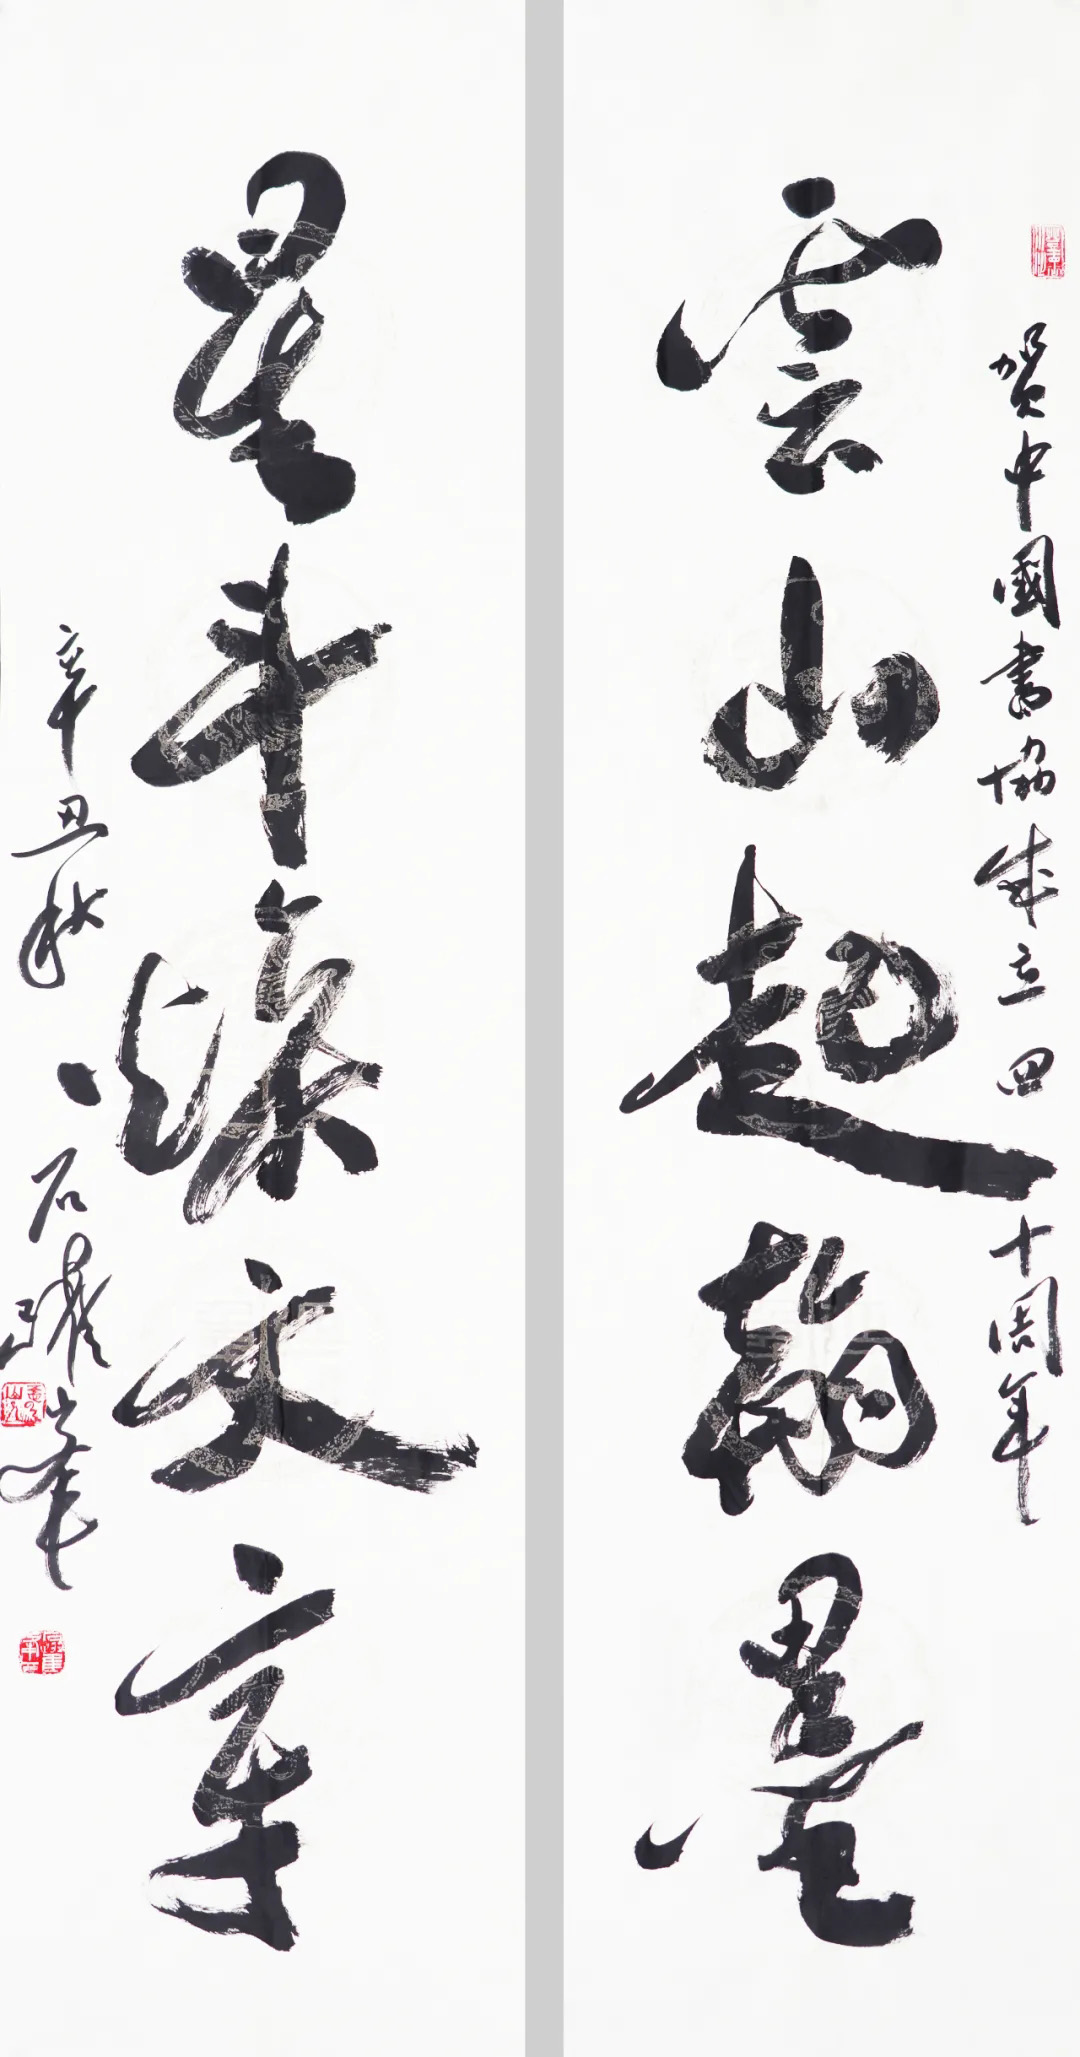 賀中國書協成立四十周年
雲山起翰墨
星斗焕文章
辛丑秋 石躍峯